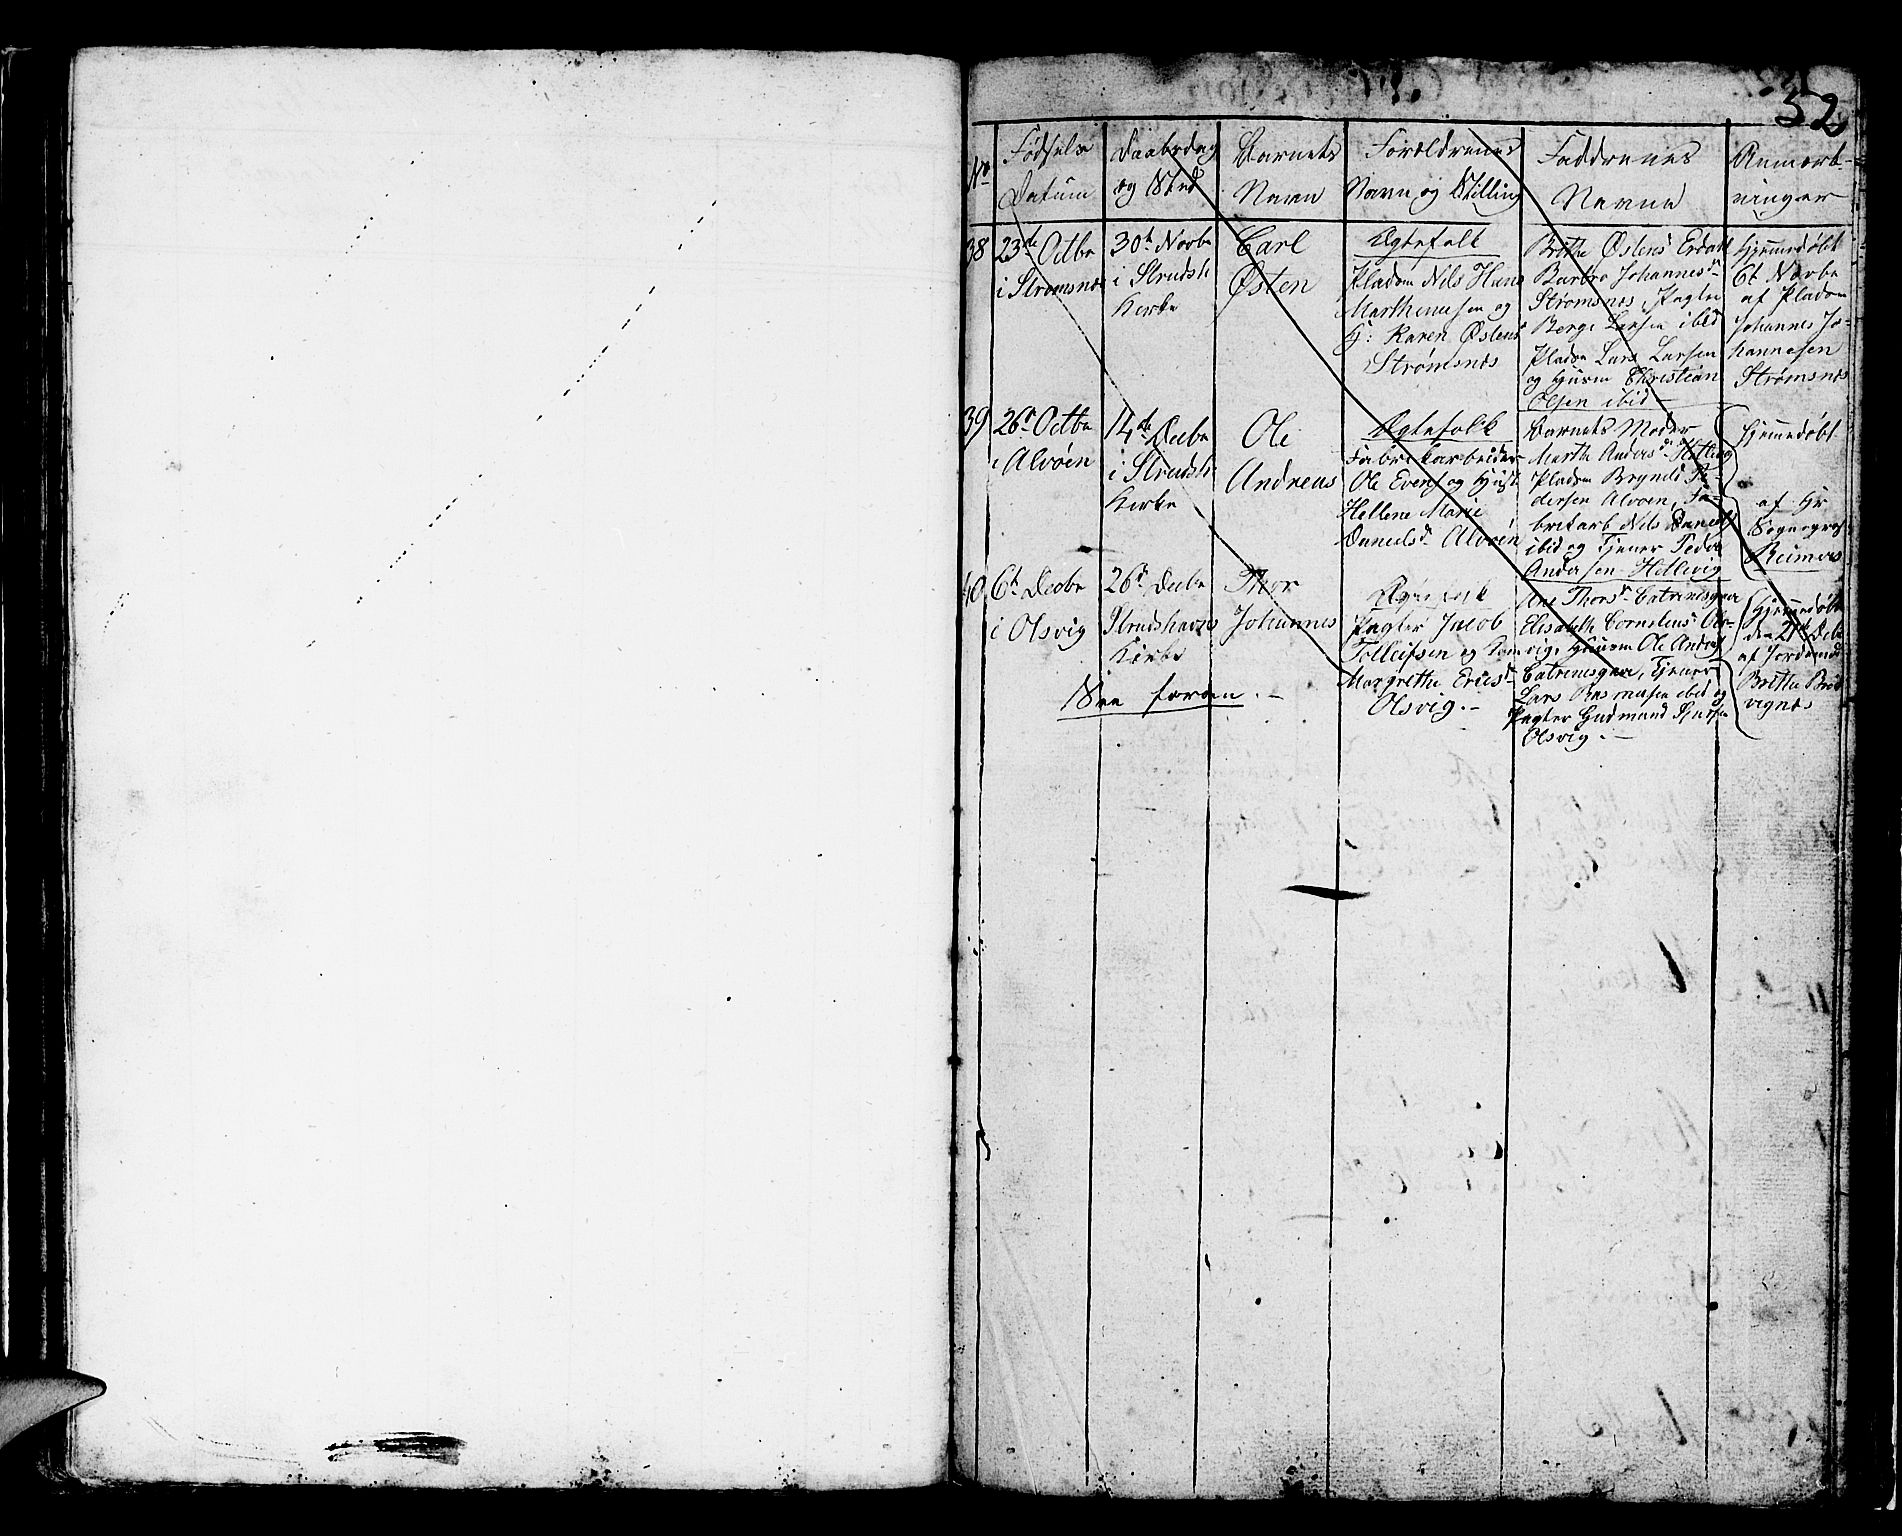 52
No
Fødsels
Datum
Daabsdag
og Sted
Barnets
Navn
Forældrenes
Navn og Stilling
Faddrenes
Navne
Anmærk-
ninger
38
23de Octbr
i Strømsnes
30te Novbr
i Strudsh
Kirke
Carl
Østen
Ægtefolk
Pladsm Nils Hans
Marthinusen og
H: Karen Østensd
Strømsnes
Brithe Østensd Erdahl
Barbro Johannesdr
Strømsnes, Pagter
Berge Larsen ibid
Pladsm Lars Larsen
og Huusm Christian
Olsen ibid
Hjemmedøbt
6t Novbr
af Pladsm
Johannes Jo-
hannesen
Strømsnes
39
26de Octbr
i Alvøen
14de Decbr
i Strudsh
Kirke
Ole
Andreas
Ægtefolk
Fabrikarbeider
Ole Evens og Hust
Hellene Marie
Danielsdr Alvøen
Barnets Moder
Marthe Andersdr Hetlevig
Pladsm Brynild Pe-
dersen Alvøen, Fa-
brikarb Nils Daniels
ibid og Tjener Peder
Andersen Hellevig
Hjemmedøbt
af Hr
Sognepræst
Reimers
40
6te Decbr
i Olsvig
26de Decbr
Strudshavns
Kirke
Thor
Johannes
Ægtefolk
Pagter Jacob
Tolleifsen og Kone
Margrethe Ericsdr
Olsvig.
Ane Thorsdr Catrinesgaar
Elisabeth Cornelius Ols-
vig, Huusm Ole Anders
Catrinesgaar, Tjener
Lars Rasmusen ibid og
Pagter Gudmund
Olsvig.
Hjemmedøbt
den 21de Decbr
af Jordemdr
Brithe Bred
vignes
See foran.